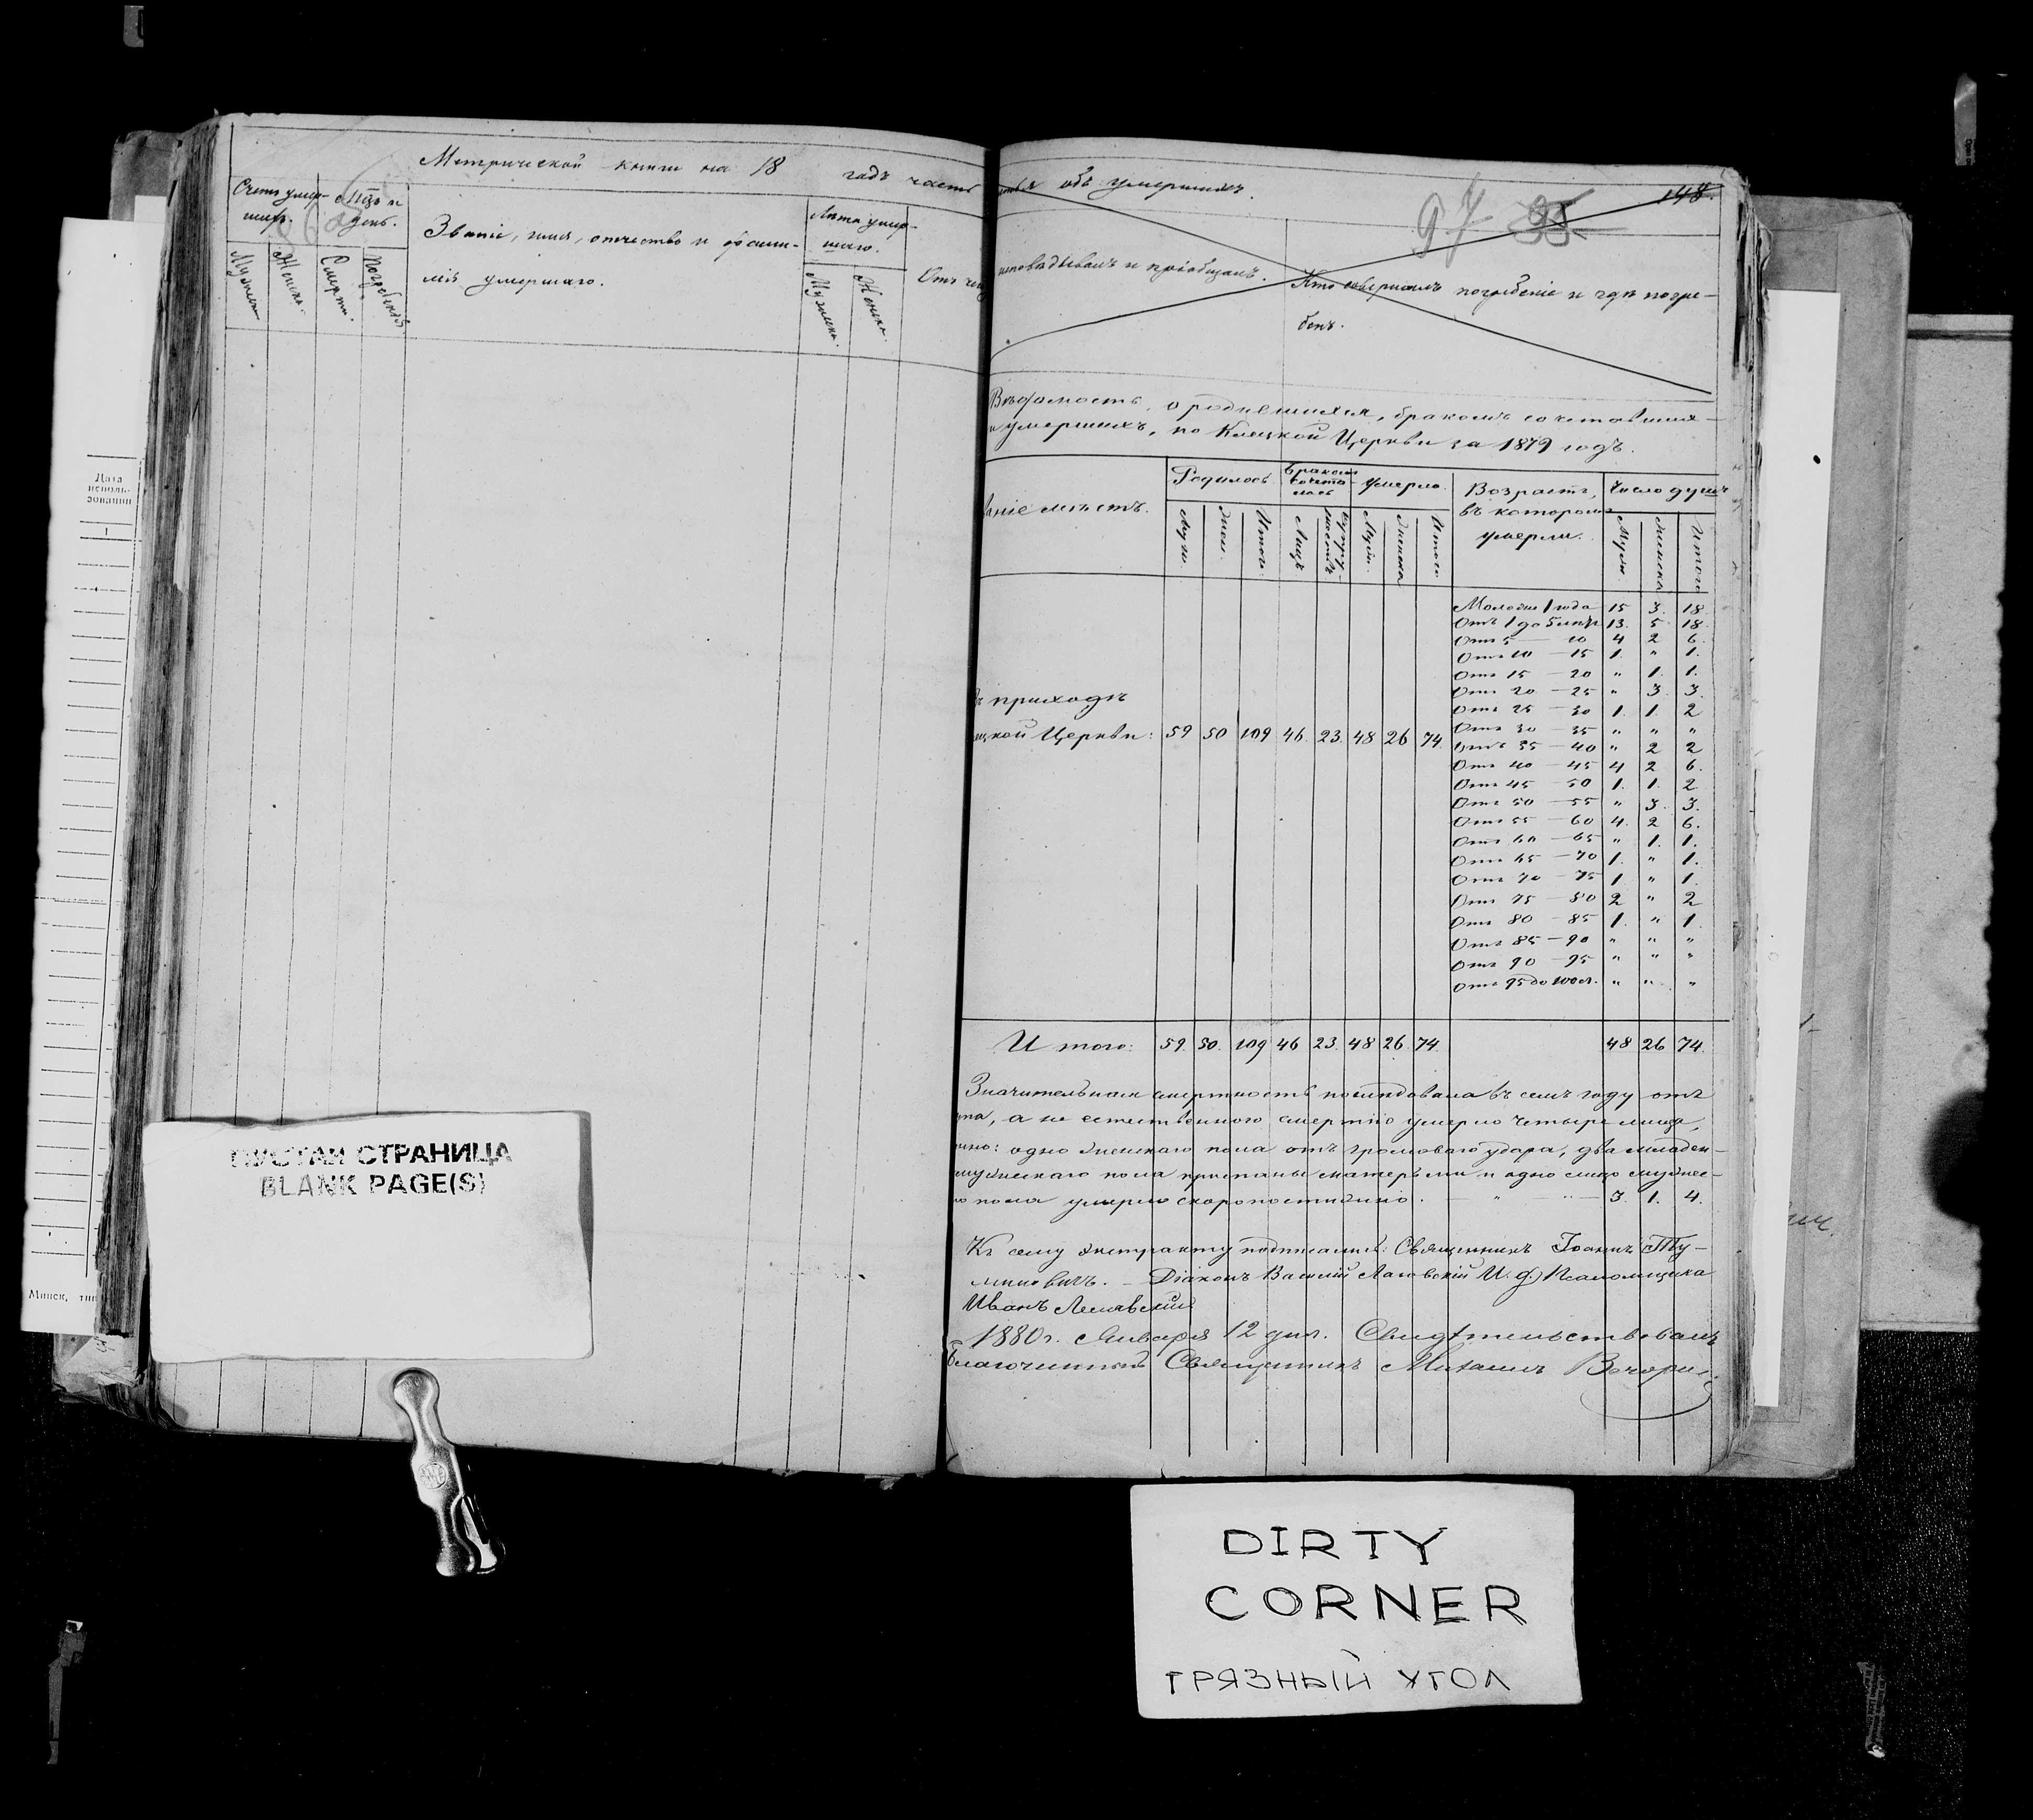 Метрической книги на 18 годъ часть
Счетъ умер-
шихъ.
Мцъ и
день.
Званіе, имя, отчество и фами-
лія умершаго.
Лѣта умер-
шаго.
Отъ чего
Мужеска.
Женска.
Смерти.
Погребенія
Мужеска.
Женска.
объ умершихъ.
97
95
148.
исповѣдывалъ и пріобщалъ.
Кто совершалъ погребеніе и гдѣ погре-
бенъ.
Вѣдомость о родившихся, бракомъ сочетавшихся
и умершихъ, по Клецкой Церкви за 1879 годъ.
Родилось
Бракомъ
сочета-
лось
Умерло.
Возрастъ,
въ которомъ
умерли.
Число душъ
ваніе мѣстъ.
Муж.
Жен.
Итого.
Лицъ
Супру-
жествъ
Муж.
Женска
Итого
Муж.
Женска
Итого
Моложе 1 года 15 3. 18.
Отъ 1 до 5 лѣтъ 13. 5 18.
Отъ 5 — 10 4 2 6.
Отъ 10 — 15 1. " 1.
Отъ 15 — 20 " 1. 1.
Отъ 20 — 25 " 3. 3.
Отъ 25 — 30 1. 1. 2
Отъ 30 — 35 " " "
Отъ 35 — 40 " 2 2
Отъ 40 — 45 4 2 6.
Отъ 45 — 50 1. 1. 2
Отъ 50 — 55 " 3. 3.
Отъ 55 — 60 4. 2 6.
Отъ 60 — 65 " 1. 1.
Отъ 65 — 70 1. " 1.
Отъ 70 — 75 1. " 1.
Отъ 75 — 80 2 " 2
Отъ 80 — 85 1. " 1.
Отъ 85 — 90 " " "
Отъ 90 — 95 " " "
Отъ 95 до 100 л. " " "
ъ приходѣ
ецкой Церкви: 59 50 109 46. 23. 48 26 74.
Итого: 59. 50. 109 46 23. 48 26. 74. 48 26 74.
Значительная смертность послѣдовала въ семъ году отъ
па, а не естественною смертію умерло четыре лица,
нно: одно женскаго пола отъ громоваго удара, два младен-
мужескаго пола приспаны матерьми и одно лицо мужес-
о пола умерло скоропостижно. — " — 3. 1. 4.
Къ сему экстракту подписались: Священникъ Іоаннъ Ту-
миновичъ. – Діаконъ Василій Лаговскій И. д. Псаломщика
Иванъ
1880 г. Января 12 дня. Свидѣтельствовалъ
Благочинный Священникъ Михаилъ
Дата
исполь-
зования
Минск, тип
ПУСТАЯ СТРАНИЦА
BLANK PAGE(S)
DIRTY
CORNER
ГРЯЗНЫЙ УГОЛ